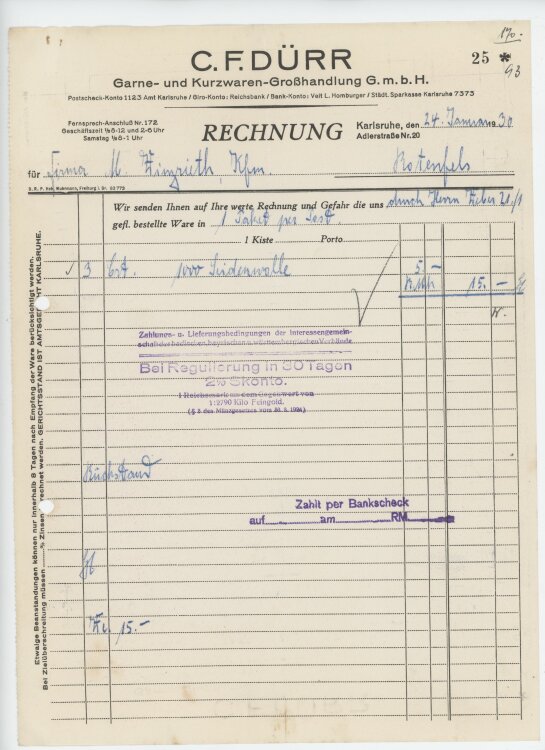 190.
C. F. DÜRR
25 *
93
Garne- und Kurzwaren-Großhandlung G. m. b. H.
Postscheck-Konto 1123 Amt Karlsruhe / Giro-Konto: Reichsbank / Bank-Konto: Veit L. Homburger / Städt. Sparkasse Karlsruhe 7373
Fernsprech-Anschluß Nr. 172
Geschäftszeit ½8-12 und 2-6 Uhr
Samstag ½8-1 Uhr
RECHNUNG
Karlsruhe, den 24. Januar 1930
Adlerstraße Nr. 20
für Firma M. Kfm. Rotenfels
D. R. P. Freiburg i. Br. 60773
Wir senden Ihnen auf Ihre werte Rechnung und Gefahr die uns durch Herrn Weber 21/1
gefl. bestellte Ware in 1 Paket per Post
1 Kiste Porto
3 Crt. 1000 Seidenwolle 5.-
R.Mk 15. -
Zahlungs- u. Lieferungsbedingungen der Interessengemein-
schaft der badischen, bayrischen u. württembergischen Verbände
Bei Regulierung in 30 Tagen
2% Skonto.
1 Reichsmark = dem Gegenwert von
1:2790 Kilo Feingold.
(§ 3 des Münzgesetzes vom 30. 8. 1924)
Rückstand
Zahlt per Bankscheck
auf am RM
15.-
Etwaige Beanstandungen können nur innerhalb 8 Tagen nach Empfang der Ware berücksichtigt werden.
Bei Zielüberschreitung müssen % Zinsen berechnet werden. GERICHTSSTAND IST AMTSGERICHT KARLSRUHE.